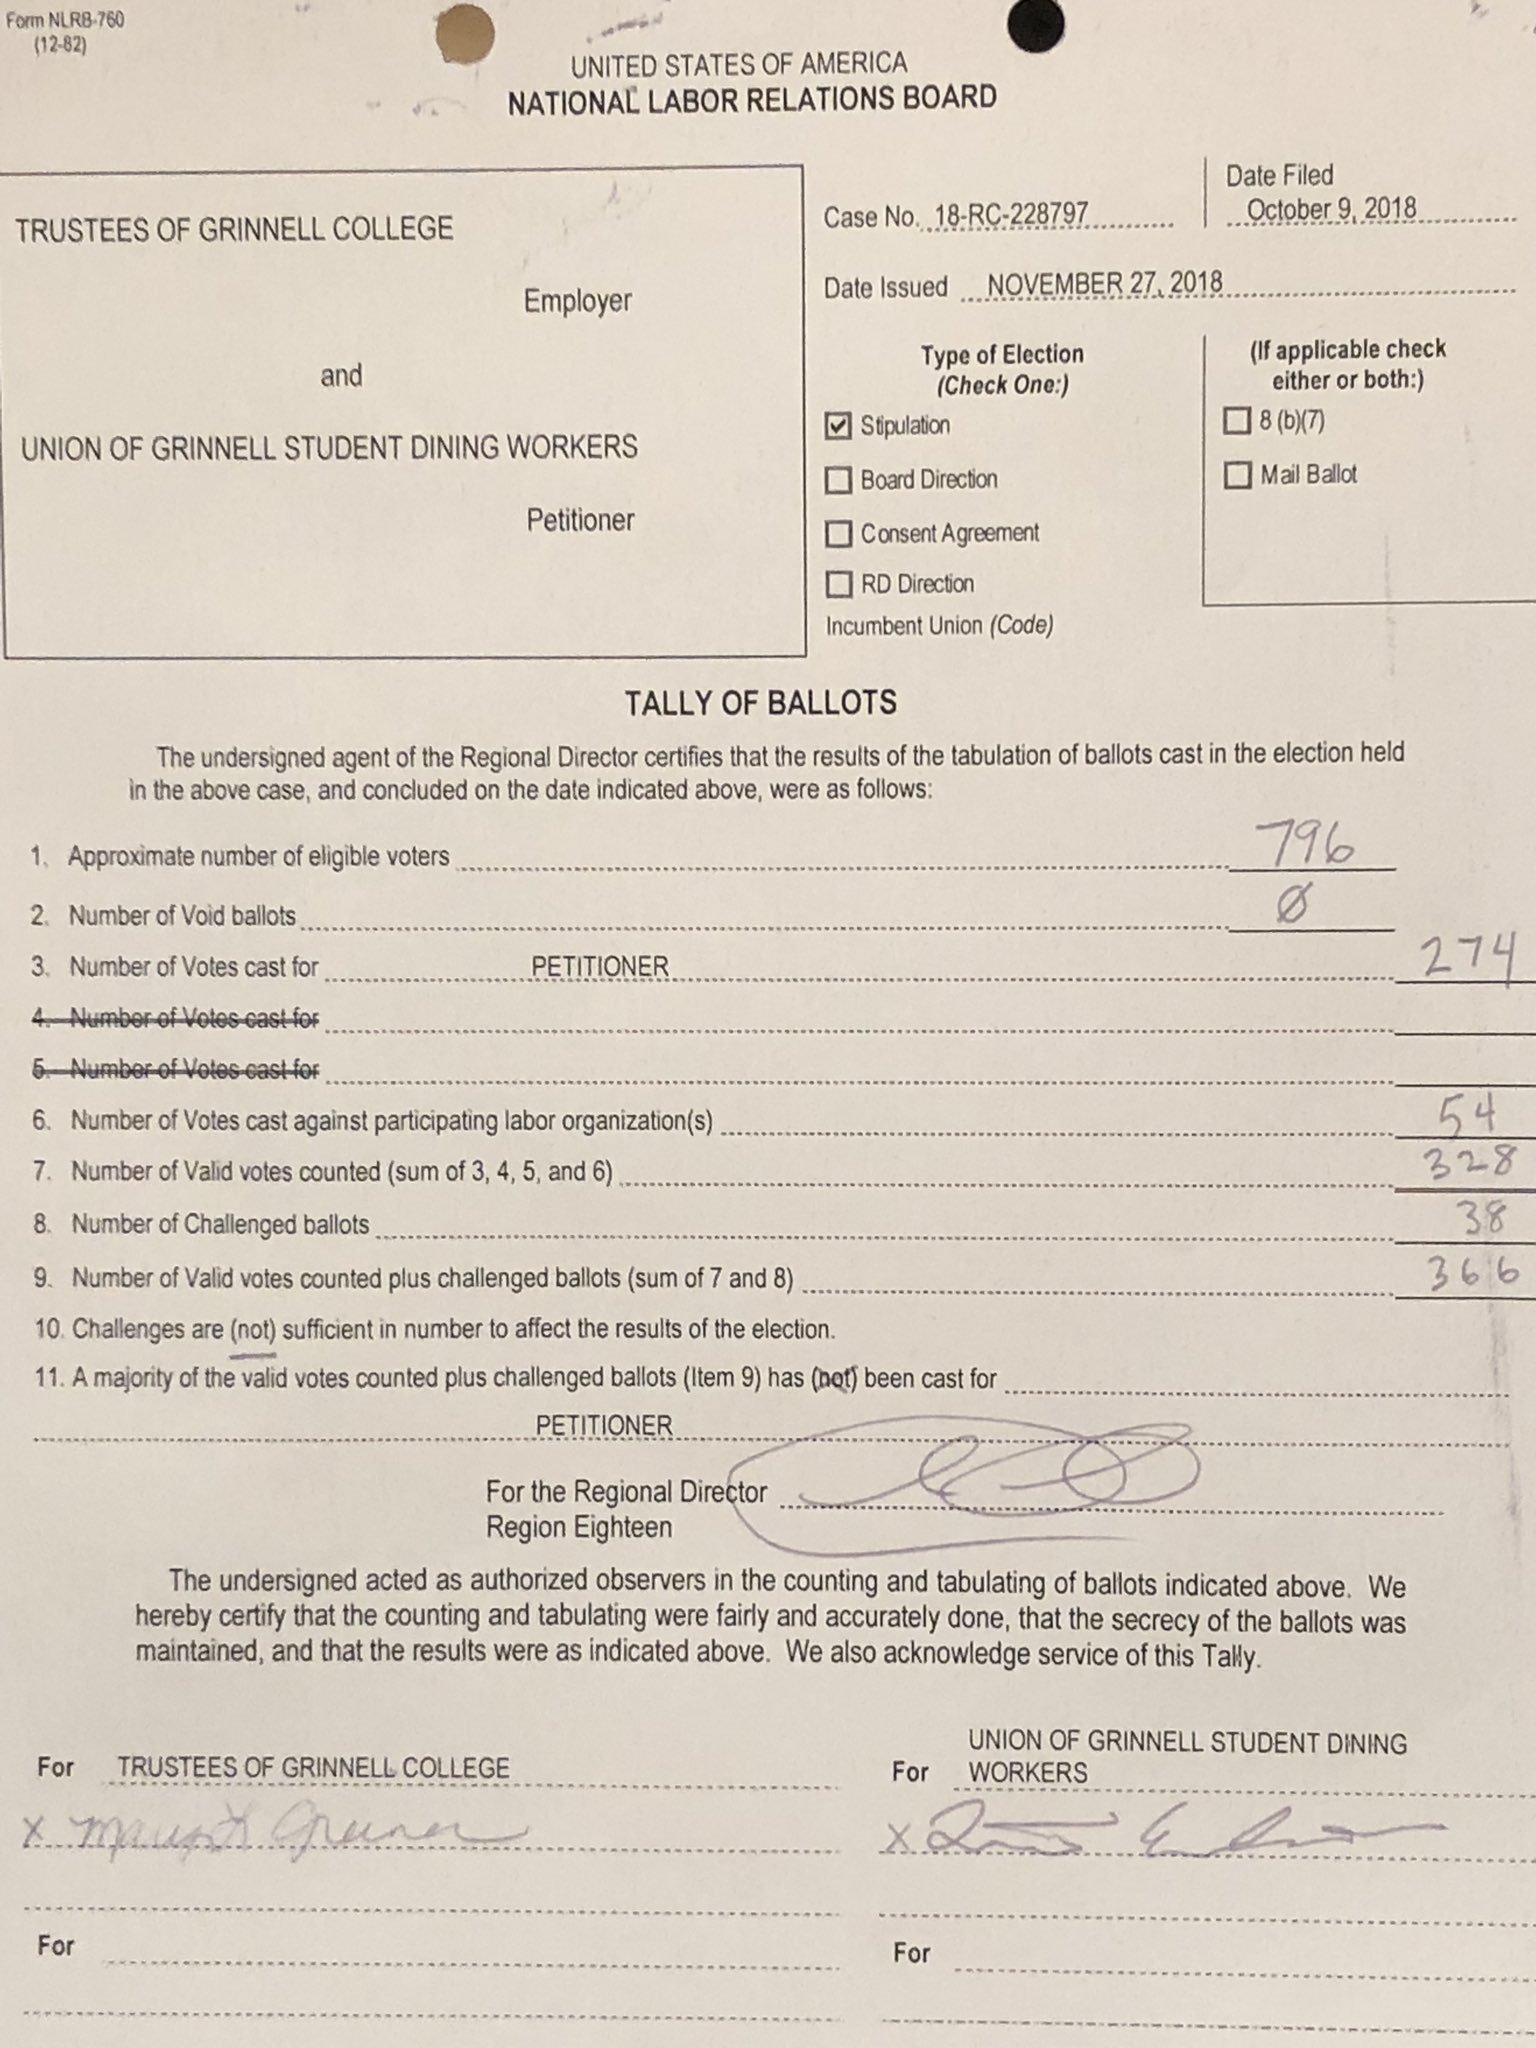 Form NLRB-760
(12-82)
UNITED STATES OF AMERICA
NATIONAL LABOR RELATIONS BOARD
TRUSTEES OF GRINNELL COLLEGE
Employer
and
UNION OF GRINNELL STUDENT DINING WORKERS
Petitioner
Case No. 18-RC-228797
Date Filed
October 9, 2018
Date Issued NOVEMBER 27, 2018
Type of Election
(Check One:)
Stipulation
Board Direction
Consent Agreement
RD Direction
Incumbent Union (Code)
(If applicable check
either or both:)
8 (b)(7)
Mail Ballot
TALLY OF BALLOTS
The undersigned agent of the Regional Director certifies that the results of the tabulation of ballots cast in the election held
in the above case, and concluded on the date indicated above, were as follows:
1. Approximate number of eligible voters 796
2. Number of Void ballots Ø
3. Number of Votes cast for PETITIONER 274
4. Number of Votes cast for
5. Number of Votes cast for
6. Number of Votes cast against participating labor organization(s) 54
7. Number of Valid votes counted (sum of 3, 4, 5, and 6) 328
8. Number of Challenged ballots 38
9. Number of Valid votes counted plus challenged ballots (sum of 7 and 8) 366
10. Challenges are (not) sufficient in number to affect the results of the election.
11. A majority of the valid votes counted plus challenged ballots (Item 9) has (not) been cast for
PETITIONER
For the Regional Director
Region Eighteen
The undersigned acted as authorized observers in the counting and tabulating of ballots indicated above. We
hereby certify that the counting and tabulating were fairly and accurately done, that the secrecy of the ballots was
maintained, and that the results were as indicated above. We also acknowledge service of this Tally.
For TRUSTEES OF GRINNELL COLLEGE
X
For UNION OF GRINNELL STUDENT DINING
WORKERS
X
For
For